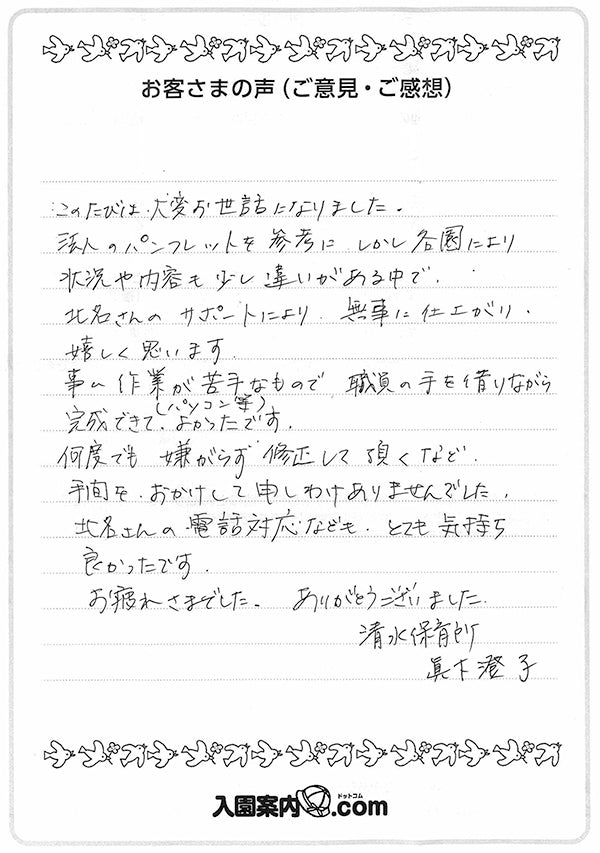 お客さまの声（ご意見・ご感想）
このたびは 大変お世話になりました。
法人のパンフレットを参考に しかし各園により
状況や内容も少し違いがある中で、
北名さんの サポートにより 無事に仕上がり、
嬉しく思います。
事ム作業が苦手なもので 職員の手を借りながら
(パソコン等)
完成できて、よかったです。
何度でも 嫌がらず 修正して頂くなど、
手間を おかけして申しわけありませんでした。
北名さんの電話対応なども、とても気持ち
良かったです。
お疲れさまでした。 ありがとうございました。
清水保育所
眞下澄子
入園案内 ドットコム .com